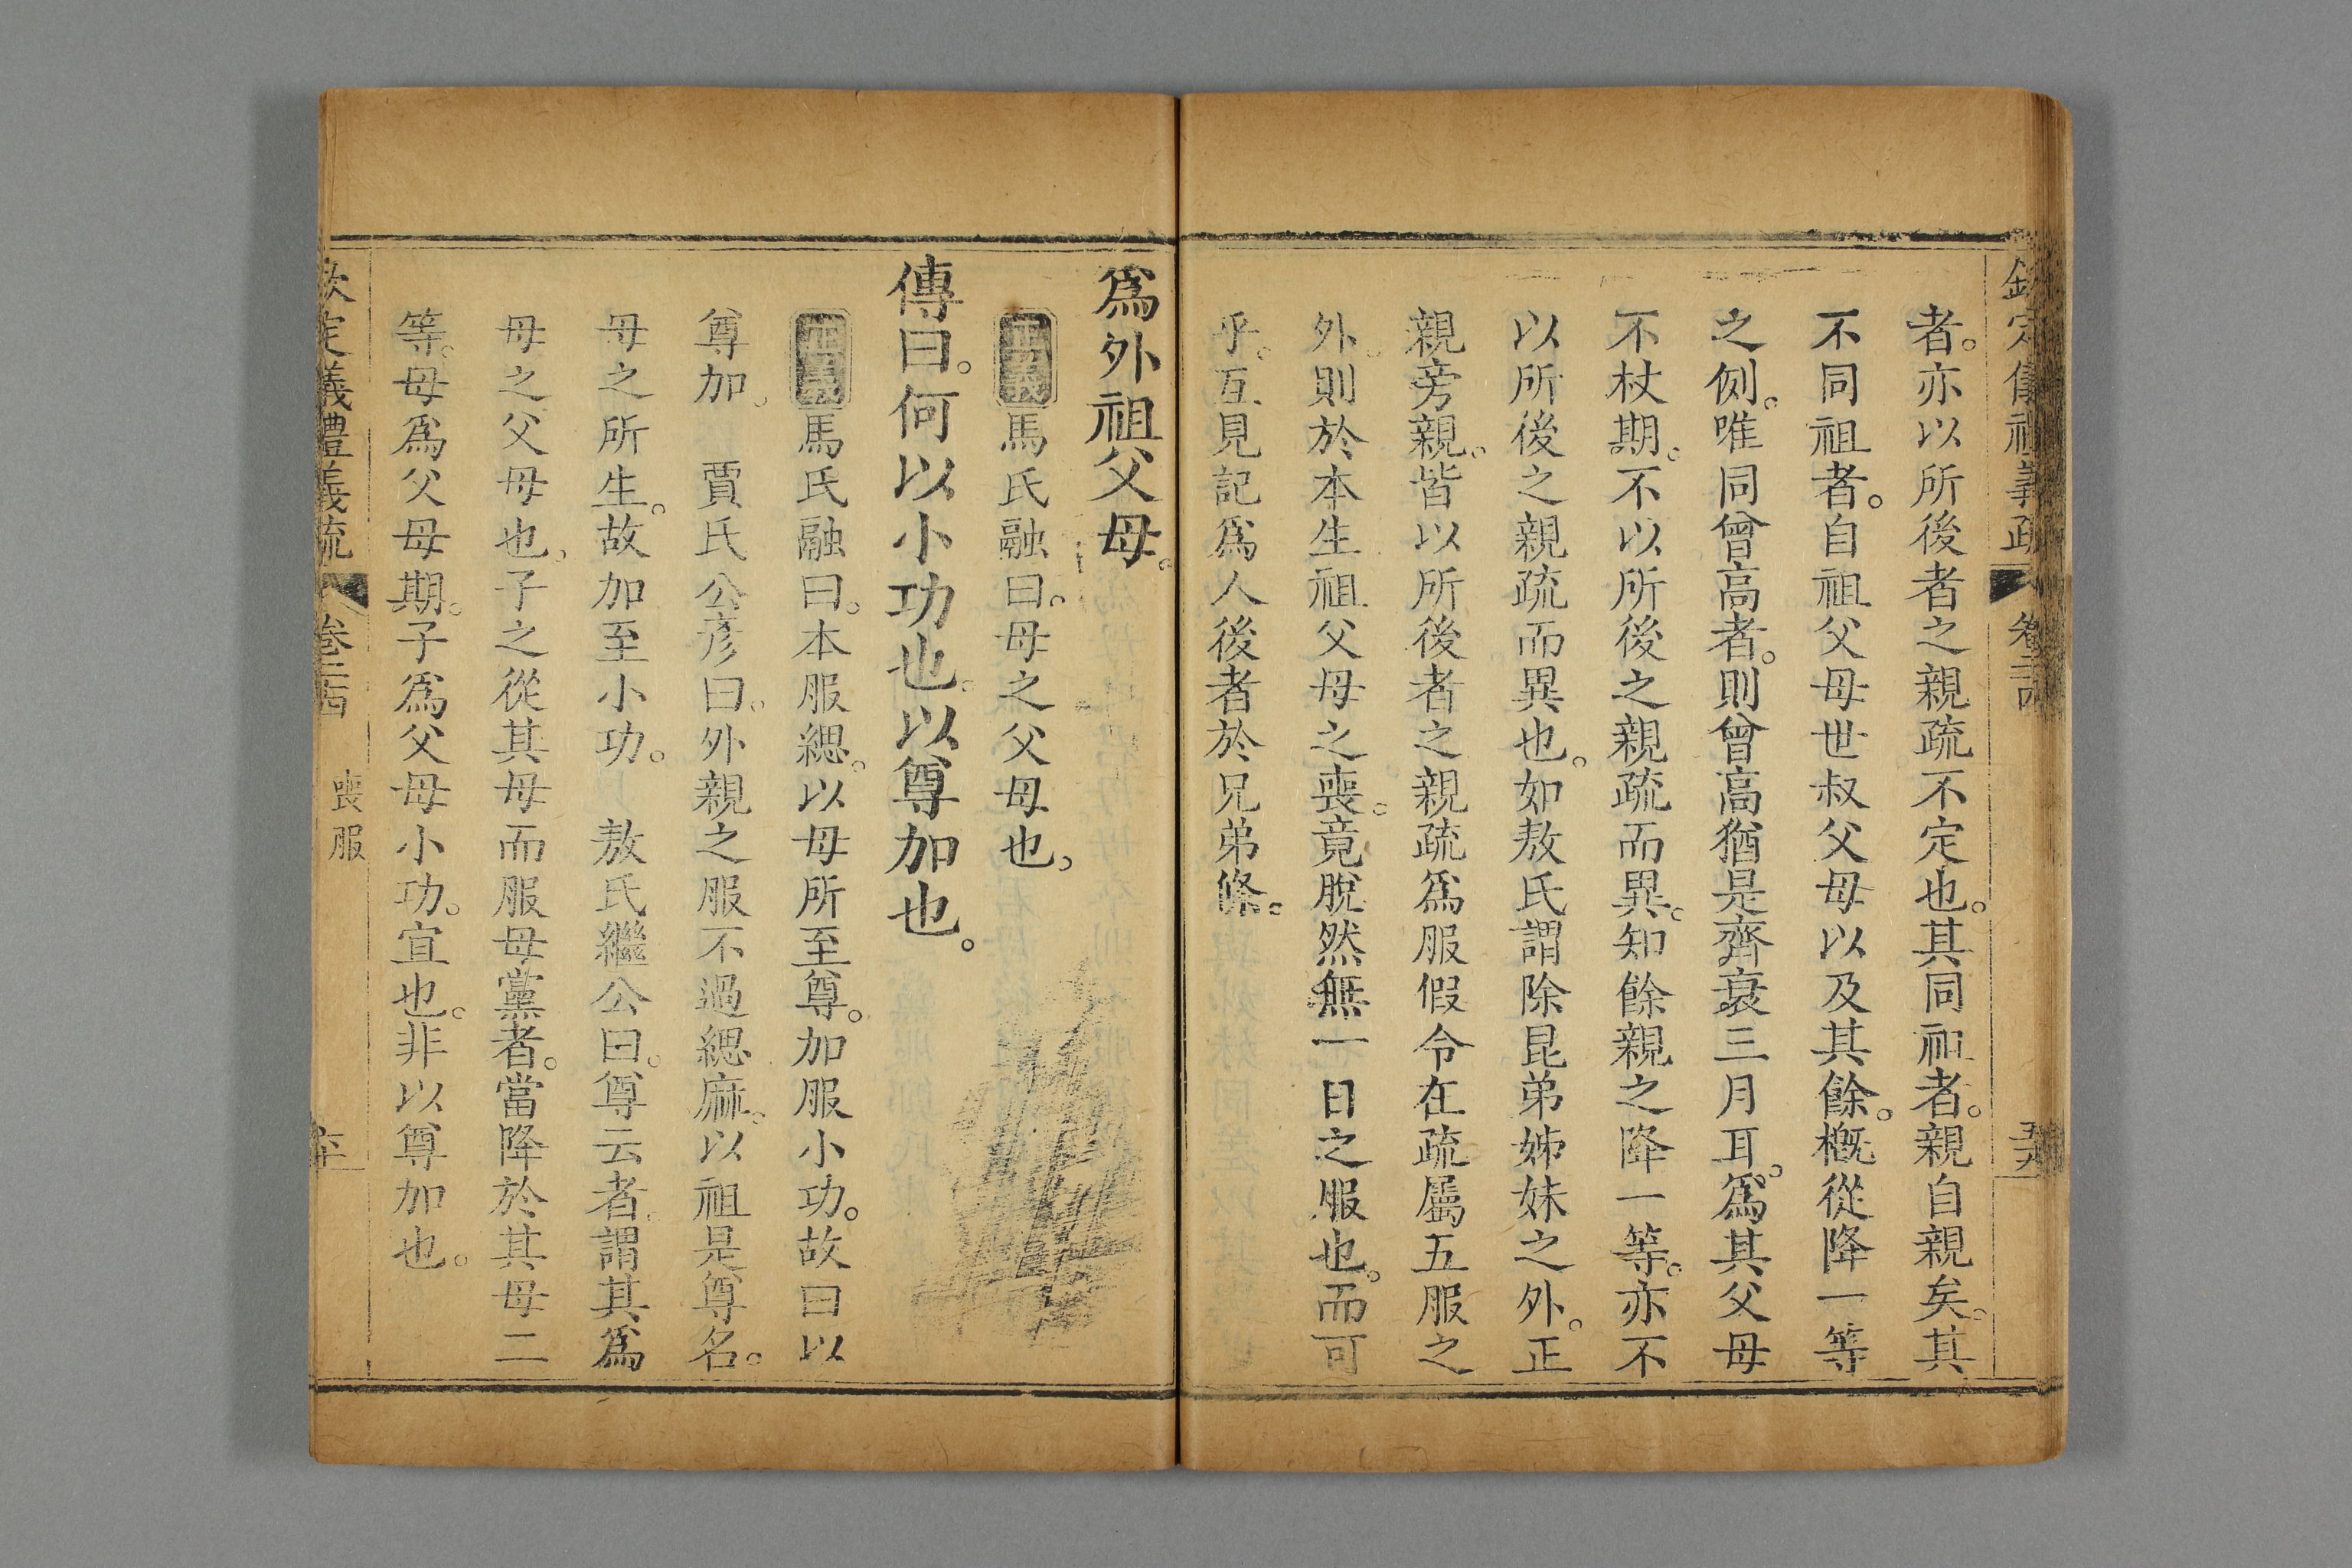 欽定儀禮義疏 卷二十四 五十九
者。亦以所後者之親疏不定也。其同祖者。親自親矣。其
不同祖者。自祖父母世叔父母以及其餘。槪從降一等
之例。唯同曾高者。則曾高猶是齊衰三月耳。爲其父母
不杖期。不以所後之親疏而異。知餘親之降一等。亦不
以所後之親疏而異也。如敖氏謂除昆弟姊妹之外。正
親旁親。皆以所後者之親疏爲服假令在疏屬五服之
外。則於本生祖父母之喪。竟脫然無一日之服也。而可
乎。互見記爲人後者於兄弟條。
爲外祖父母。
正義馬氏融曰。母之父母也。
傳曰。何以小功也。以尊加也。
正義馬氏融曰。本服緦。以母所至尊。加服小功。故曰以
尊加。 賈氏公彥曰。外親之服不過緦麻。以祖是尊名。
母之所生。故加至小功。 敖氏繼公曰。尊云者。謂其爲
母之父母也。子之從其母而服母黨者。當降於其母二
等。母爲父母期。子爲父母小功。宜也。非以尊加也。
欽定義禮義疏 卷二十四 喪服 六十